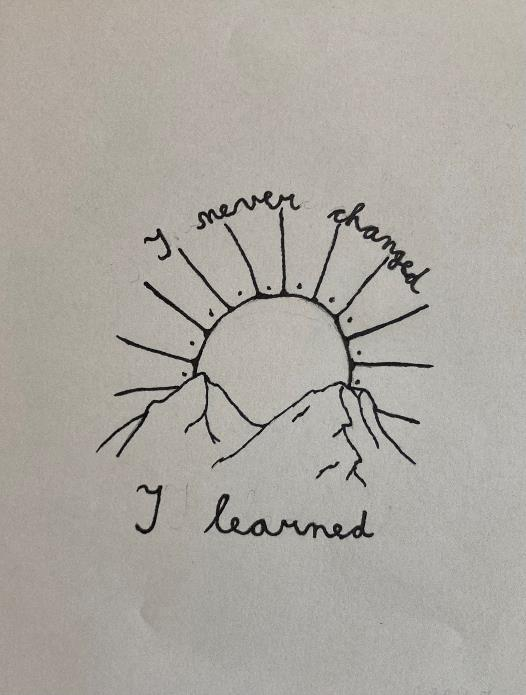 I never changed
I learned